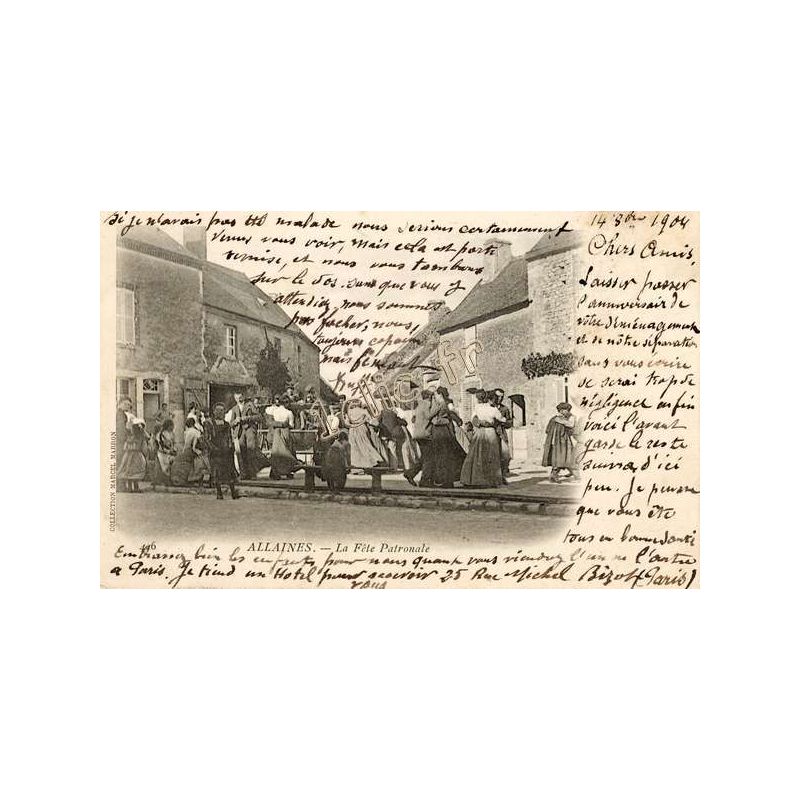 14 8bre 1904
Chers Amis,
Laisser passer
l'anniversair de
votre déménagement
et de nôtre séparation
sans vous écrire
se serai trop de
négligence enfin
voici l'avant
garde le reste
suivra d'ici
peu. Je pense
que vous ête
tous en bonne santé
si je n'avais pas été malade nous serions certainement
venus vous voir, mais cela est partie
remise, et nous vous tomberons
sur le dos sans que vous y
attendiez, nous sommes
pas facher, nous
toujours copain
mais
1clic1.fr
COLLECTION MARCEL MARRON
446
ALLAINES. — La Fête Patronale
Embrassez bien les enfants pour nous quand vous viendrez l'un ou l'autre
a Paris. Je tiend un Hotel pour recevoir 25 Rue Michel Bizot (Paris)
vous